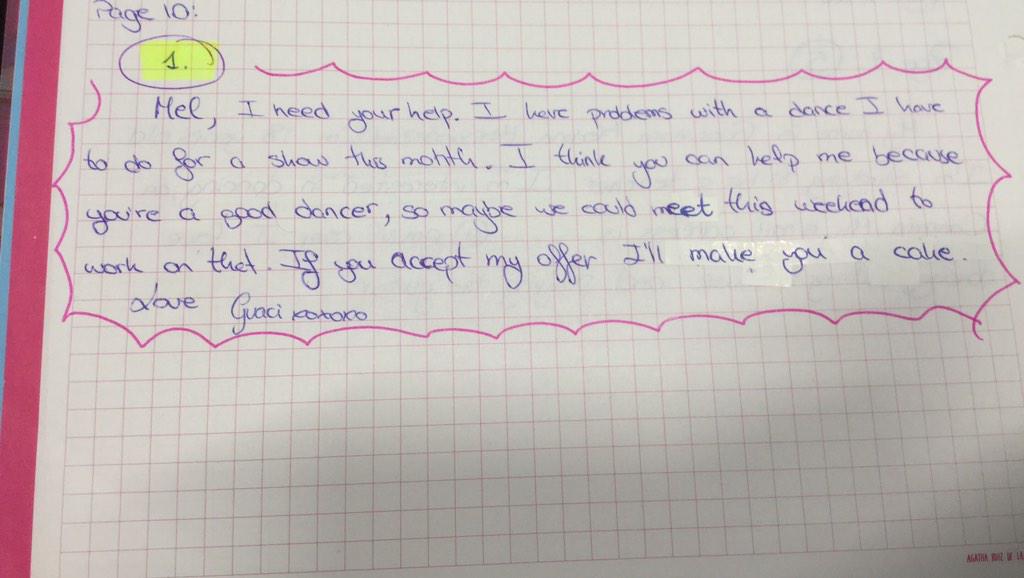 Page 10:
1.
Mel, I need your help. I have problems with a dance I have
to do for a show this month. I think you can help me because
you're a good dancer, so maybe we could meet this weekend to
work on that. If you accept my offer I'll make you a cake.
Love Guaci
AGATHA RUIZ DE LA